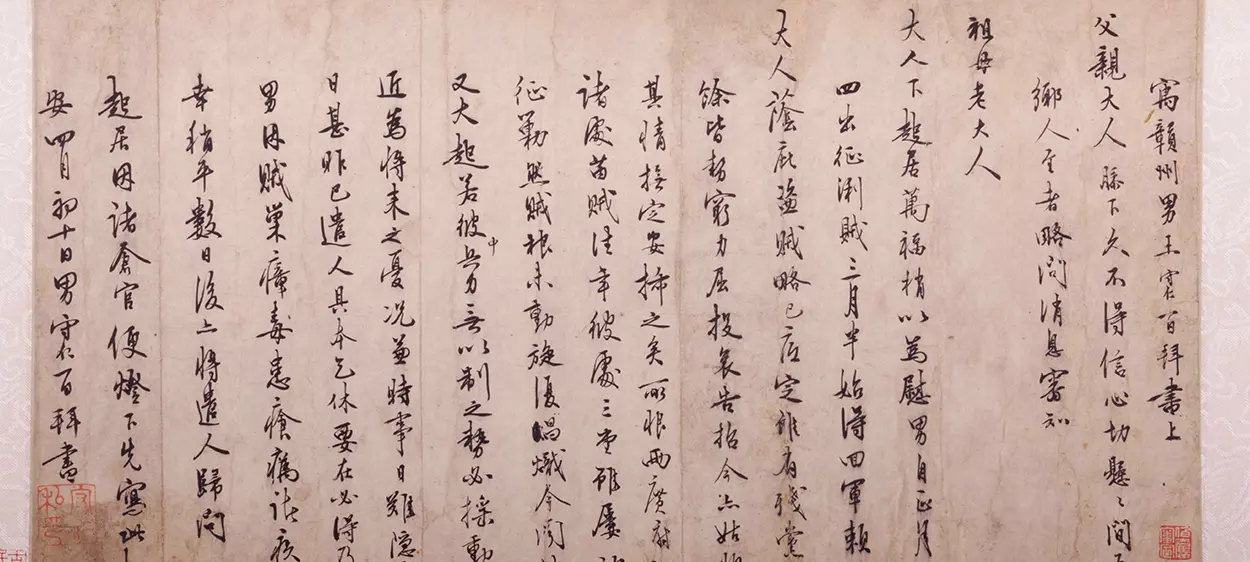 寓贛州男王守仁百拜書上
父親大人膝下久不得信心切懸懸間
鄉人至者略問消息審知
祖母老大人
大人下起居萬福稍以為慰男自正月
四出征浰賊三月半始得回軍賴
大人蔭庇盜賊略已底定雖有殘黨
餘皆勢窮力屈投哀告招今亦姑順
其情撫定安插之矣所恨兩廣府
諸處苗賊往年彼處三堂雖屢
征勦然賊根未動旋復倡熾今聞
又大起若彼中兵力無以制之勢必搖動
近為將來之憂況兼時事日難隱
日甚昨已遣人具本乞休要在必得乃
男因賊巢瘴毒患瘡癘諸疾
幸稍平數日後亦將遣人歸問
起居因諸倉官便燈下先寫此
安四月初十日男守仁百拜書